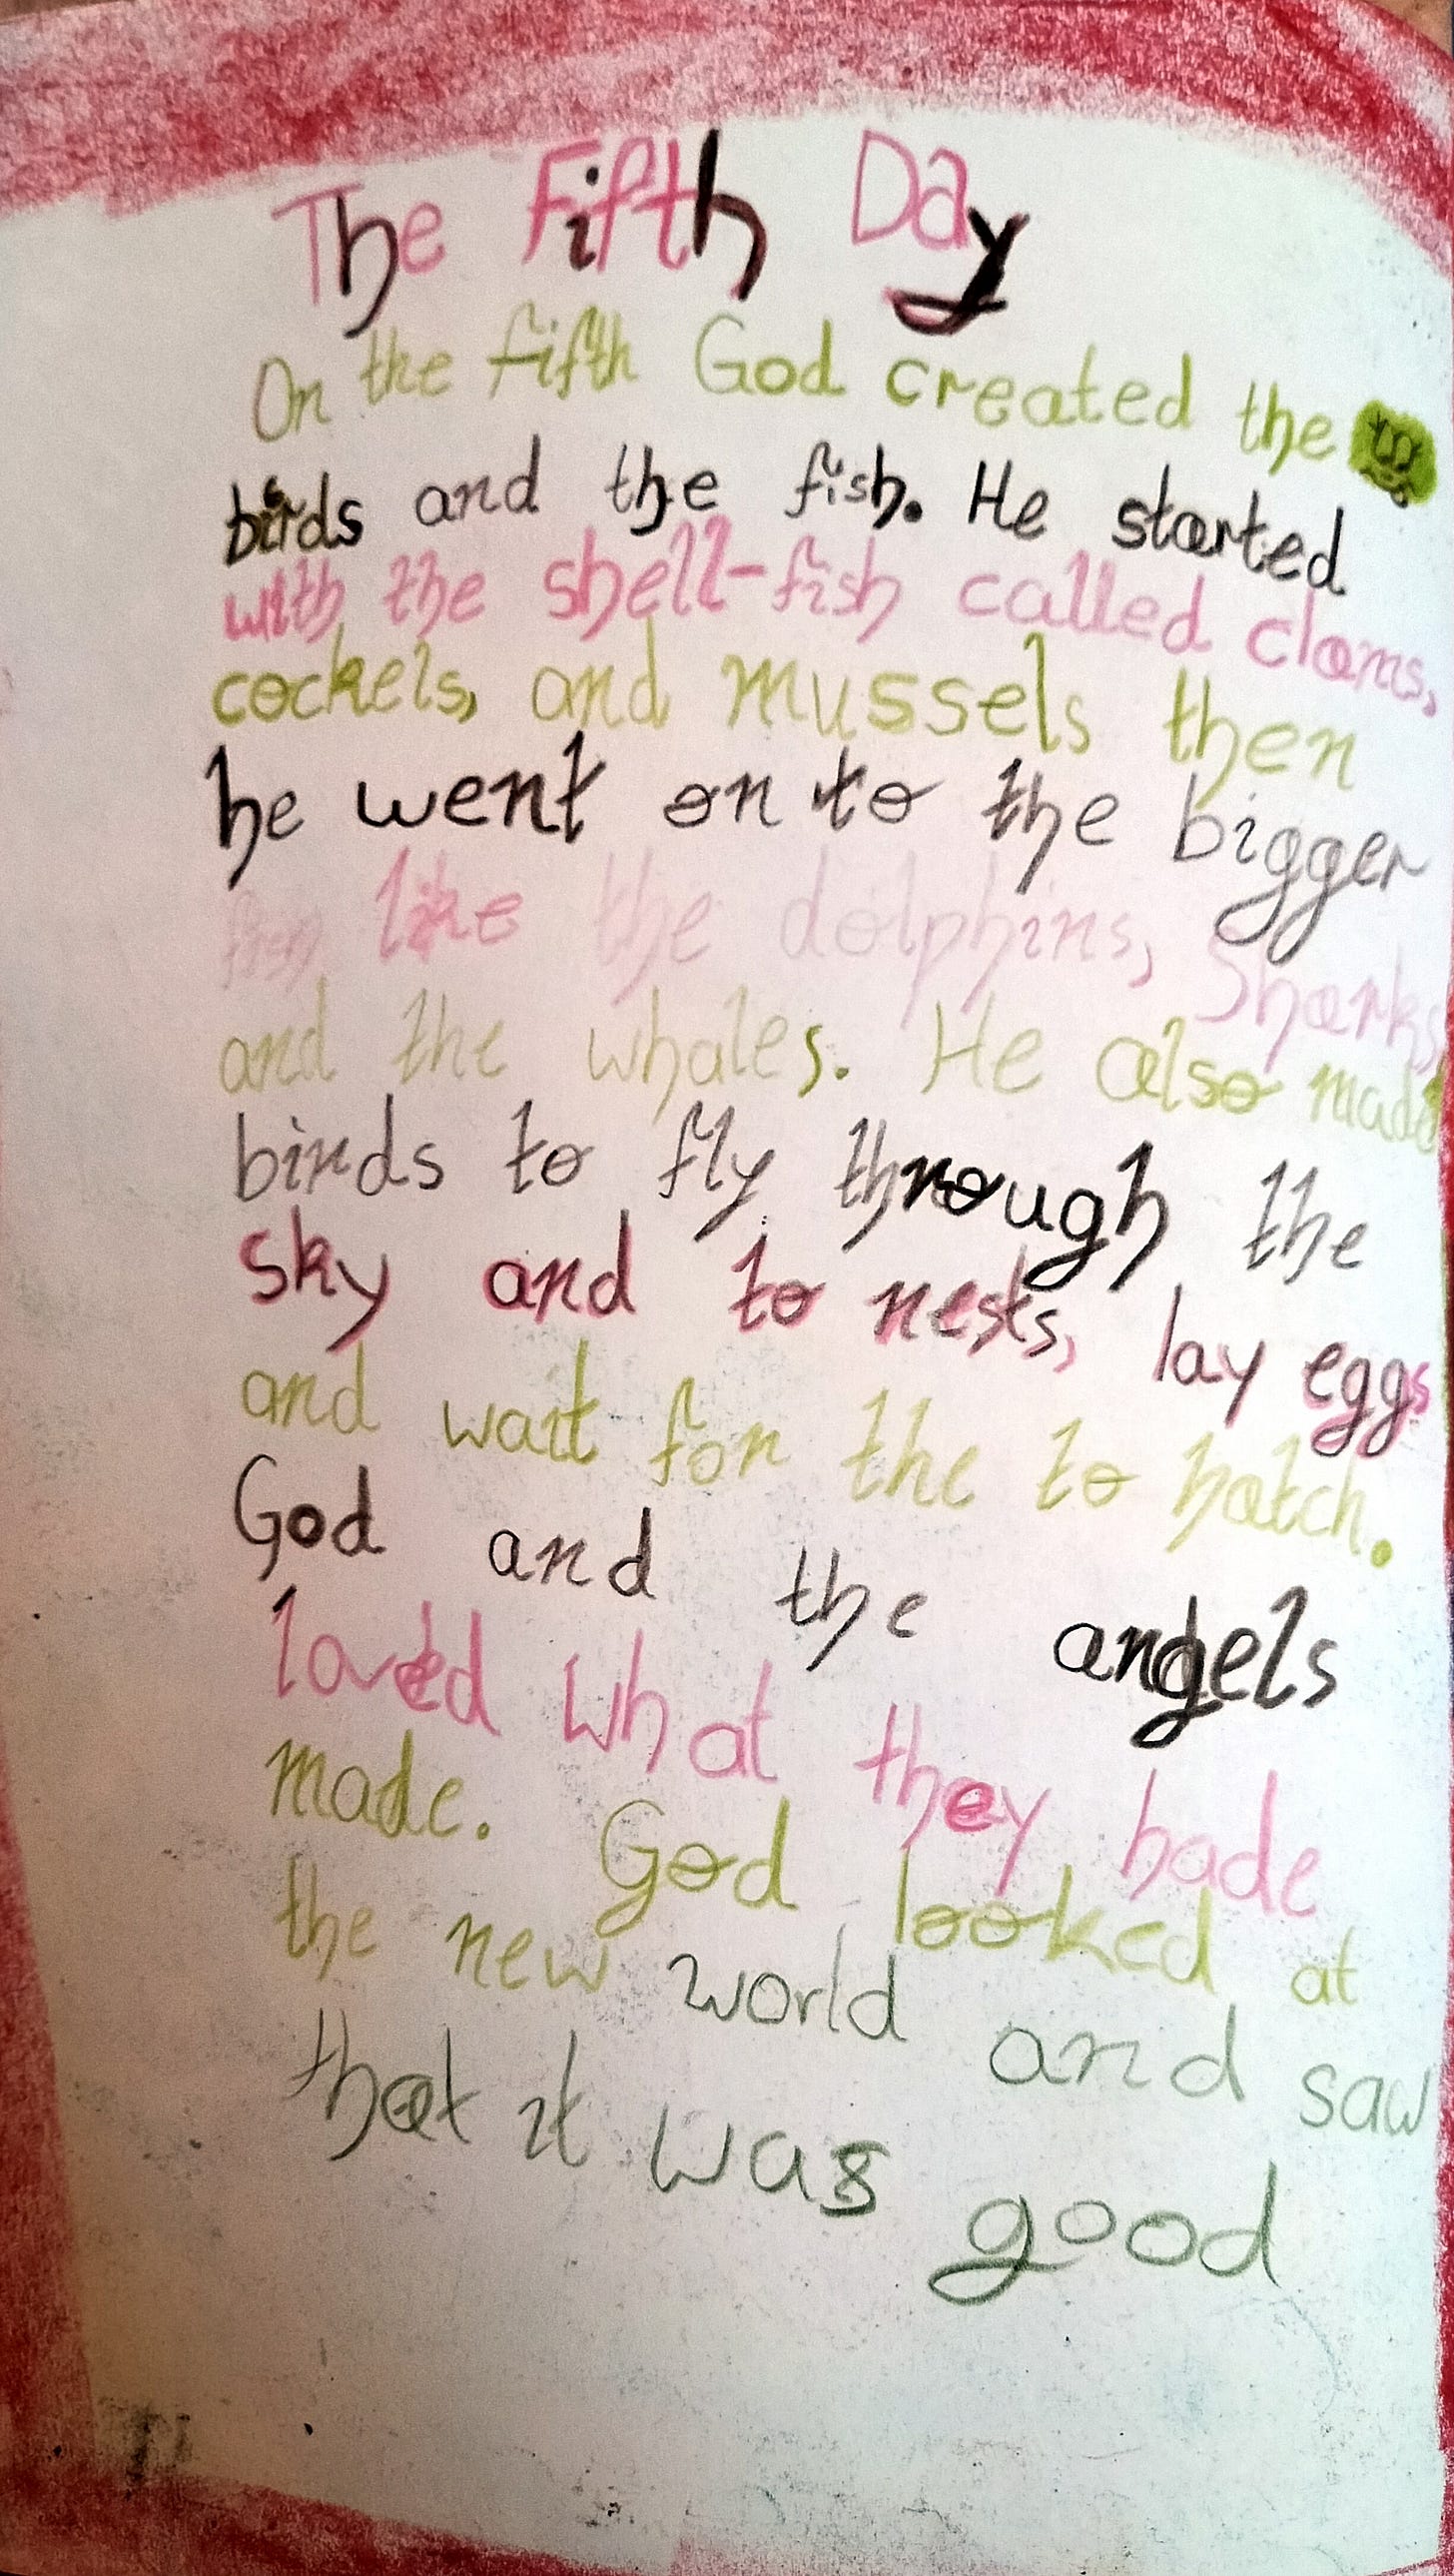 The Fifth Day
On the fifth God created the
birds and the fish. He started
with the shell-fish called clams,
cockels, and mussels then
he went on to the bigger
like the dolphins, Sharks
and the whales. He also made
birds to fly through the
sky and to nests, lay eggs
and wait for the to hatch.
God and the angels
loved what they hade
made. God looked at
the new world and saw
that it was good